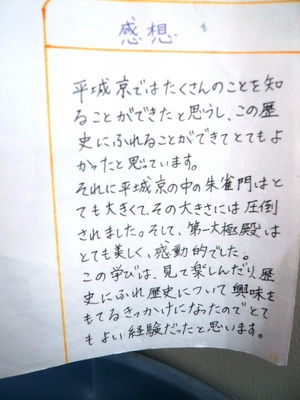 感想
平城京ではたくさんのことを知
ることができたと思うし、この歴
史にふれることができてとてもよ
かったと思っています。
それに平城京の中の朱雀門はと
ても大きくて、その大きさには圧倒
されました。そして、第一大極殿は
とても美しく、感動的でした。
この学びは、見て楽しんだり、歴
史にふれ歴史について興味を
もてるきっかけになったのでとて
もよい経験だったと思います。